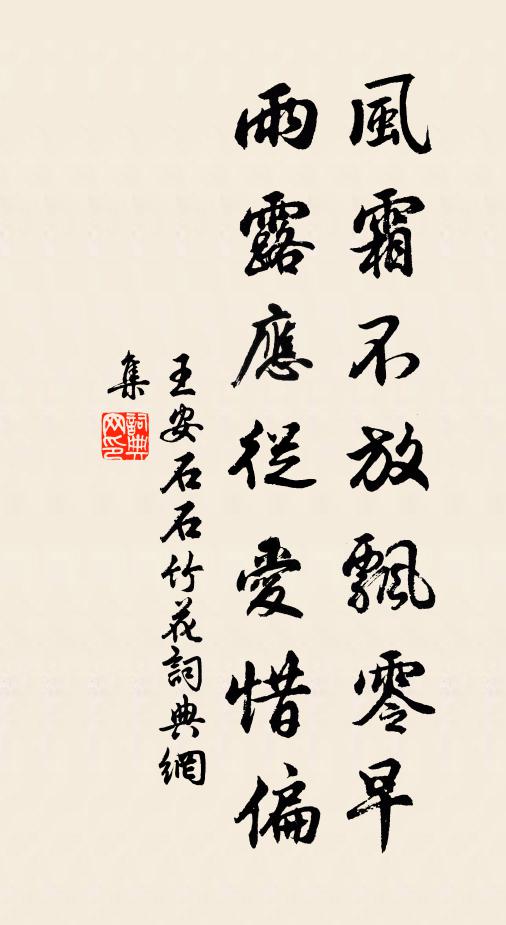 風霜不放飄零早
雨露應從愛惜偏
王安石石竹花詞典網
集
詞典
网印